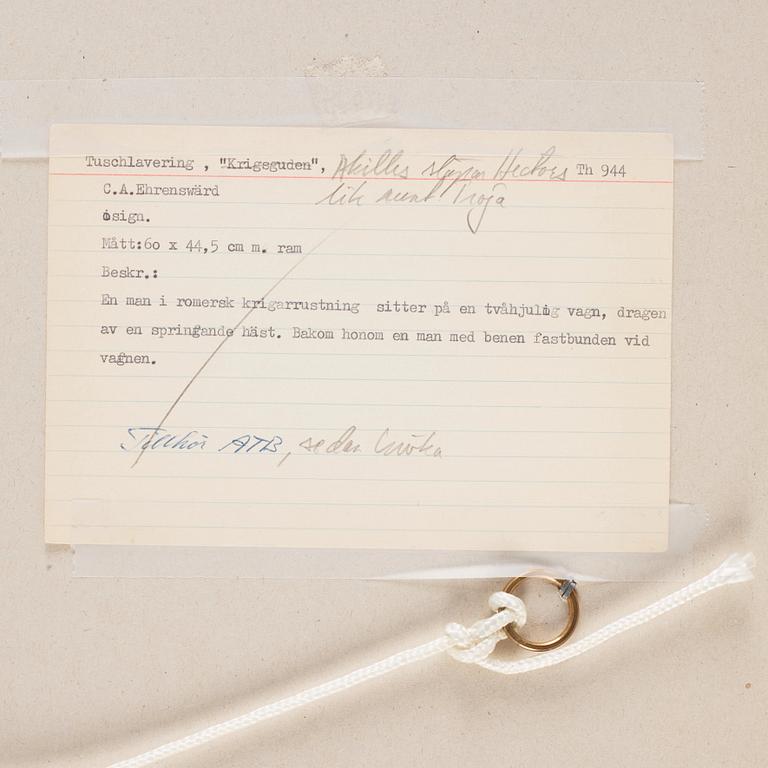 Tuschlavering , "Krigsguden", Akilles släpar Hectors Th 944
lik runt Troja
C.A.Ehrenswärd
osign.
Mått:60 x 44,5 cm m. ram
Beskr.:
En man i romersk krigarrustning sitter på en tvåhjulig vagn, dragen
av en springande häst. Bakom honom en man med benen fastbunden vid
vagnen.
Tillhör ATB, sedan